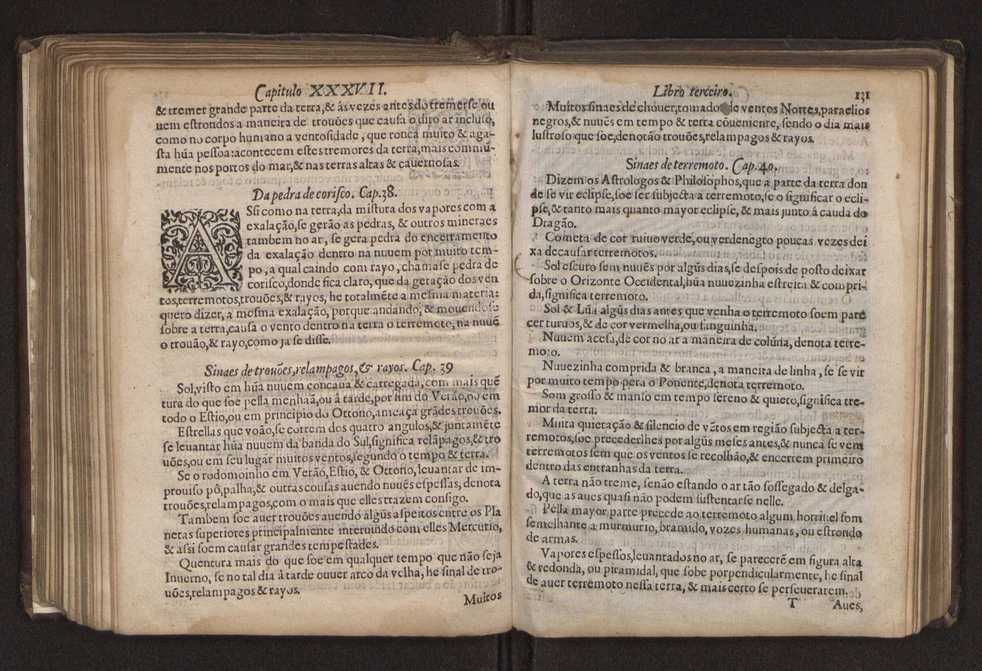 Capitulo XXXVII.
& tremer grande parte da terra, & ás vezes antes do tremerse ou
uem estrondos a maneira de trouões que causa o dito ar incluso,
como no corpo humano a ventosidade, que ronca muito & aga-
sta hũa pessoa: acontecem estes tremores da terra, mais commũ-
mente nos portos do mar, & nas terras altas & cauernosas.
Da pedra de corisco. Cap. 38.
ASsi como na terra, da mistura dos vapores com a
exalação, se gerão as pedras, & outros mineraes
tambem no ar, se gera pedra do encerramento
da exalação dentro na nuuem por muito tem-
po, a qual caindo com rayo, chamase pedra de
corisco, donde fica claro, que da geração dos ven
tos, terremotos, trouões, & rayos, he totalmẽte a mesma materia:
quero dizer, a mesma exalação, porque andando, & mouendose
sobre a terra, causa o vento dentro na terra o terremoto, na nuuẽ
o trouão, & rayo, como ja se disse.
Sinaes de trouões, relampagos, & rayos. Cap. 39
Sol, visto em hũa nuuem concaua & carregada, com mais quẽ
tura do que soe pella menhaã, ou á tarde, por fim do Verão, ou em
todo o Estio, ou em principio do Ottono, ameaça grãdes trouões.
Estrellas que voão, se correm dos quatro angulos, & juntamẽte
se leuantar hũa nuuem da banda do Sul, significa relãpagos, & tro
uões, ou em seu lugar muitos ventos, segundo o tempo & terra.
Se o rodomoinho em Verão, Estio, & Ottono, leuantar de im-
prouiso pô, palha, & outras cousas auendo nuuẽs espessas, denota
trouões, relampagos, com o mais que elles trazem consigo.
Tambem soe auer trouões auendo algũs aspeitos entre os Pla
netas superiores principalmente interuindo com elles Mercurio,
& assi soem causar grandes tempestades.
Quentura mais do que soe em qualquer tempo que não seja
Inuerno, se no tal dia á tarde ouuer arco da velha, he sinal de tro-
uões, relampagos & rayos.
Muitos
Libro terceiro. 131
Muitos sinaes de chouer, tomado de ventos Nortes, para elios
negros, & nuuẽs em tempo & terra cõueniente, sendo o dia mais
lustroso que soe, denotão trouões, relampagos & rayos.
Sinaes de terremoto. Cap. 40.
Dizem os Astrologos & Philosophos, que a parte da terra don
de se vir eclipse, soe ser subjecta a terremoto, se o significar o ecli-
pse, & tanto mais quanto mayor eclipse, & mais junto â cauda do
Dragão.
Cometa de cor ruiuo verde, ou verdenegro poucas vezes dei
xa de causar terremotos.
Sol escuro sem nuuẽs por algũs dias, se despois de posto deixar
sobre o Orizonte Occidental, hũa nuuezinha estreita & compri-
da, significa terremoto.
Sol & Lũa algũs dias antes que venha o terremoto soem pare
cer turuos, & de cor vermelha, ou sanguinha.
Nuuem acesa, de cor no ar a maneira de colũna, denota terre-
moto.
Nuuezinha comprida & branca, a maneira de linha, se se vir
por muito tempo pera o Ponente, denota terremoto.
Som grosso & manso em tempo sereno & quieto, significa tre-
mor da terra.
Muita quietação & silencio de vẽtos em região subjecta a ter-
remotos, soe precederlhes por algũs meses antes, & nunca se vem
terremotos sem que os ventos se recolhão, & encerrem primeiro
dentro das entranhas da terra.
A terra não treme, senão estando o ar tão sossegado & delga-
do, que as aues quasi não podem sustentarse nelle.
Pella mayor parte precede ao terremoto algum horriuel som
semelhante a murmurio, bramido, vozes humanas, ou estrondo
de armas.
Vapores espessos, leuantados no ar, se parecerẽ em figura alta
& redonda, ou piramidal, que sobe porpendicularmente, he sinal
de auer terremoto nessa terra, & mais certo se perseuerarem.
T Aues,